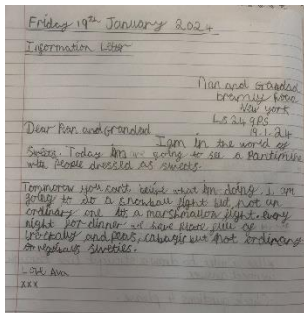 Friday 19th January 2024
Information Letter
Nan and Grandad
New York
LS24 9PS
19.1.24
Dear Nan and Grandad
I am in the world of
Sweets. Today Im going to see a Pantimime
with People dressed as sweets.
Tommorow you can't belive what Im doing. I am
going to do a snowball fight but not an
ordinary one its a marshmallow fight. every
night for dinner we have plates full of
and peas, cabagis but not ordinary
sweeties.
Love Ava
xxx